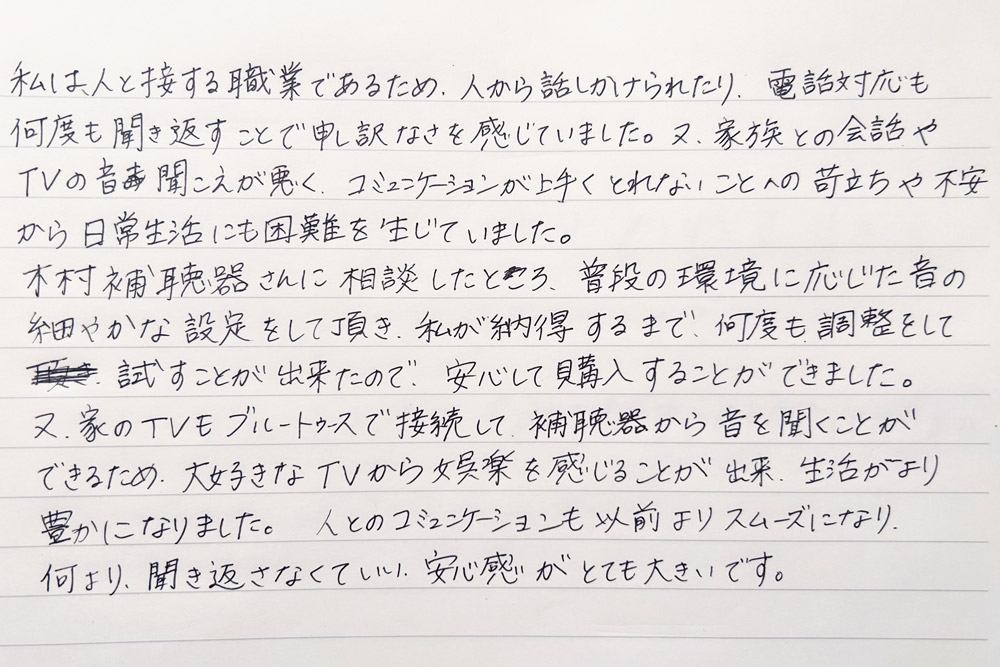 私は、人と接する職業であるため、人から話しかけられたり、電話対応も
何度も聞き返すことで申し訳なさを感じていました。又、家族との会話や
TVの音声聞こえが悪く、コミュニケーションが上手くとれないことへの苛立ちや不安
から日常生活にも困難を生じていました。
木村補聴器さんに相談したところ、普段の環境に応じた音の
細やかな設定をして頂き、私が納得するまで、何度も調整をして
試すことが出来たので、安心して購入することができました。
又、家のTVもブルートゥースで接続して、補聴器から音を聞くことが
できるため、大好きなTVから娯楽を感じることが出来、生活がより
豊かになりました。 人とのコミュニケーションも以前よりスムーズになり、
何より、聞き返さなくていい、安心感がとても大きいです。